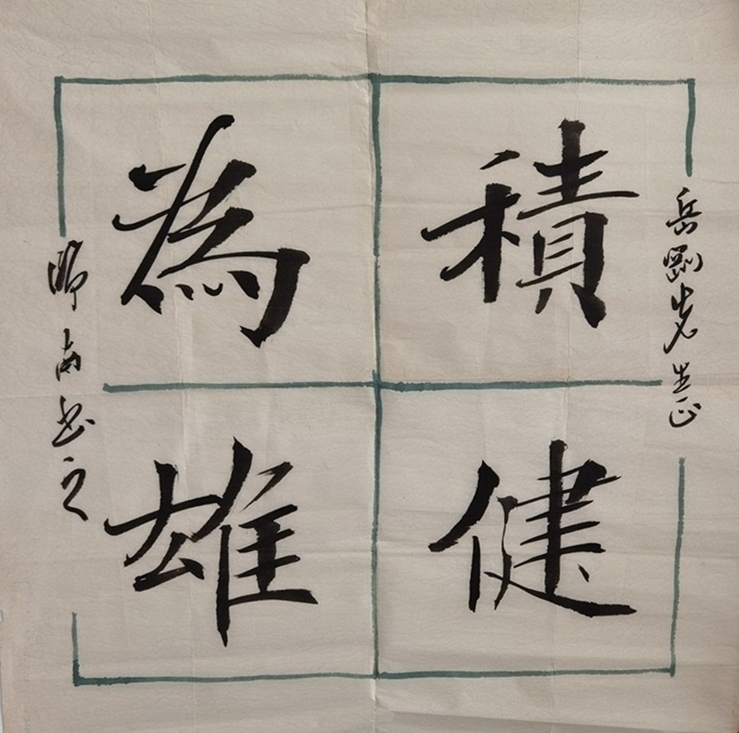 岳剛先生正
積健
為雄
南書之